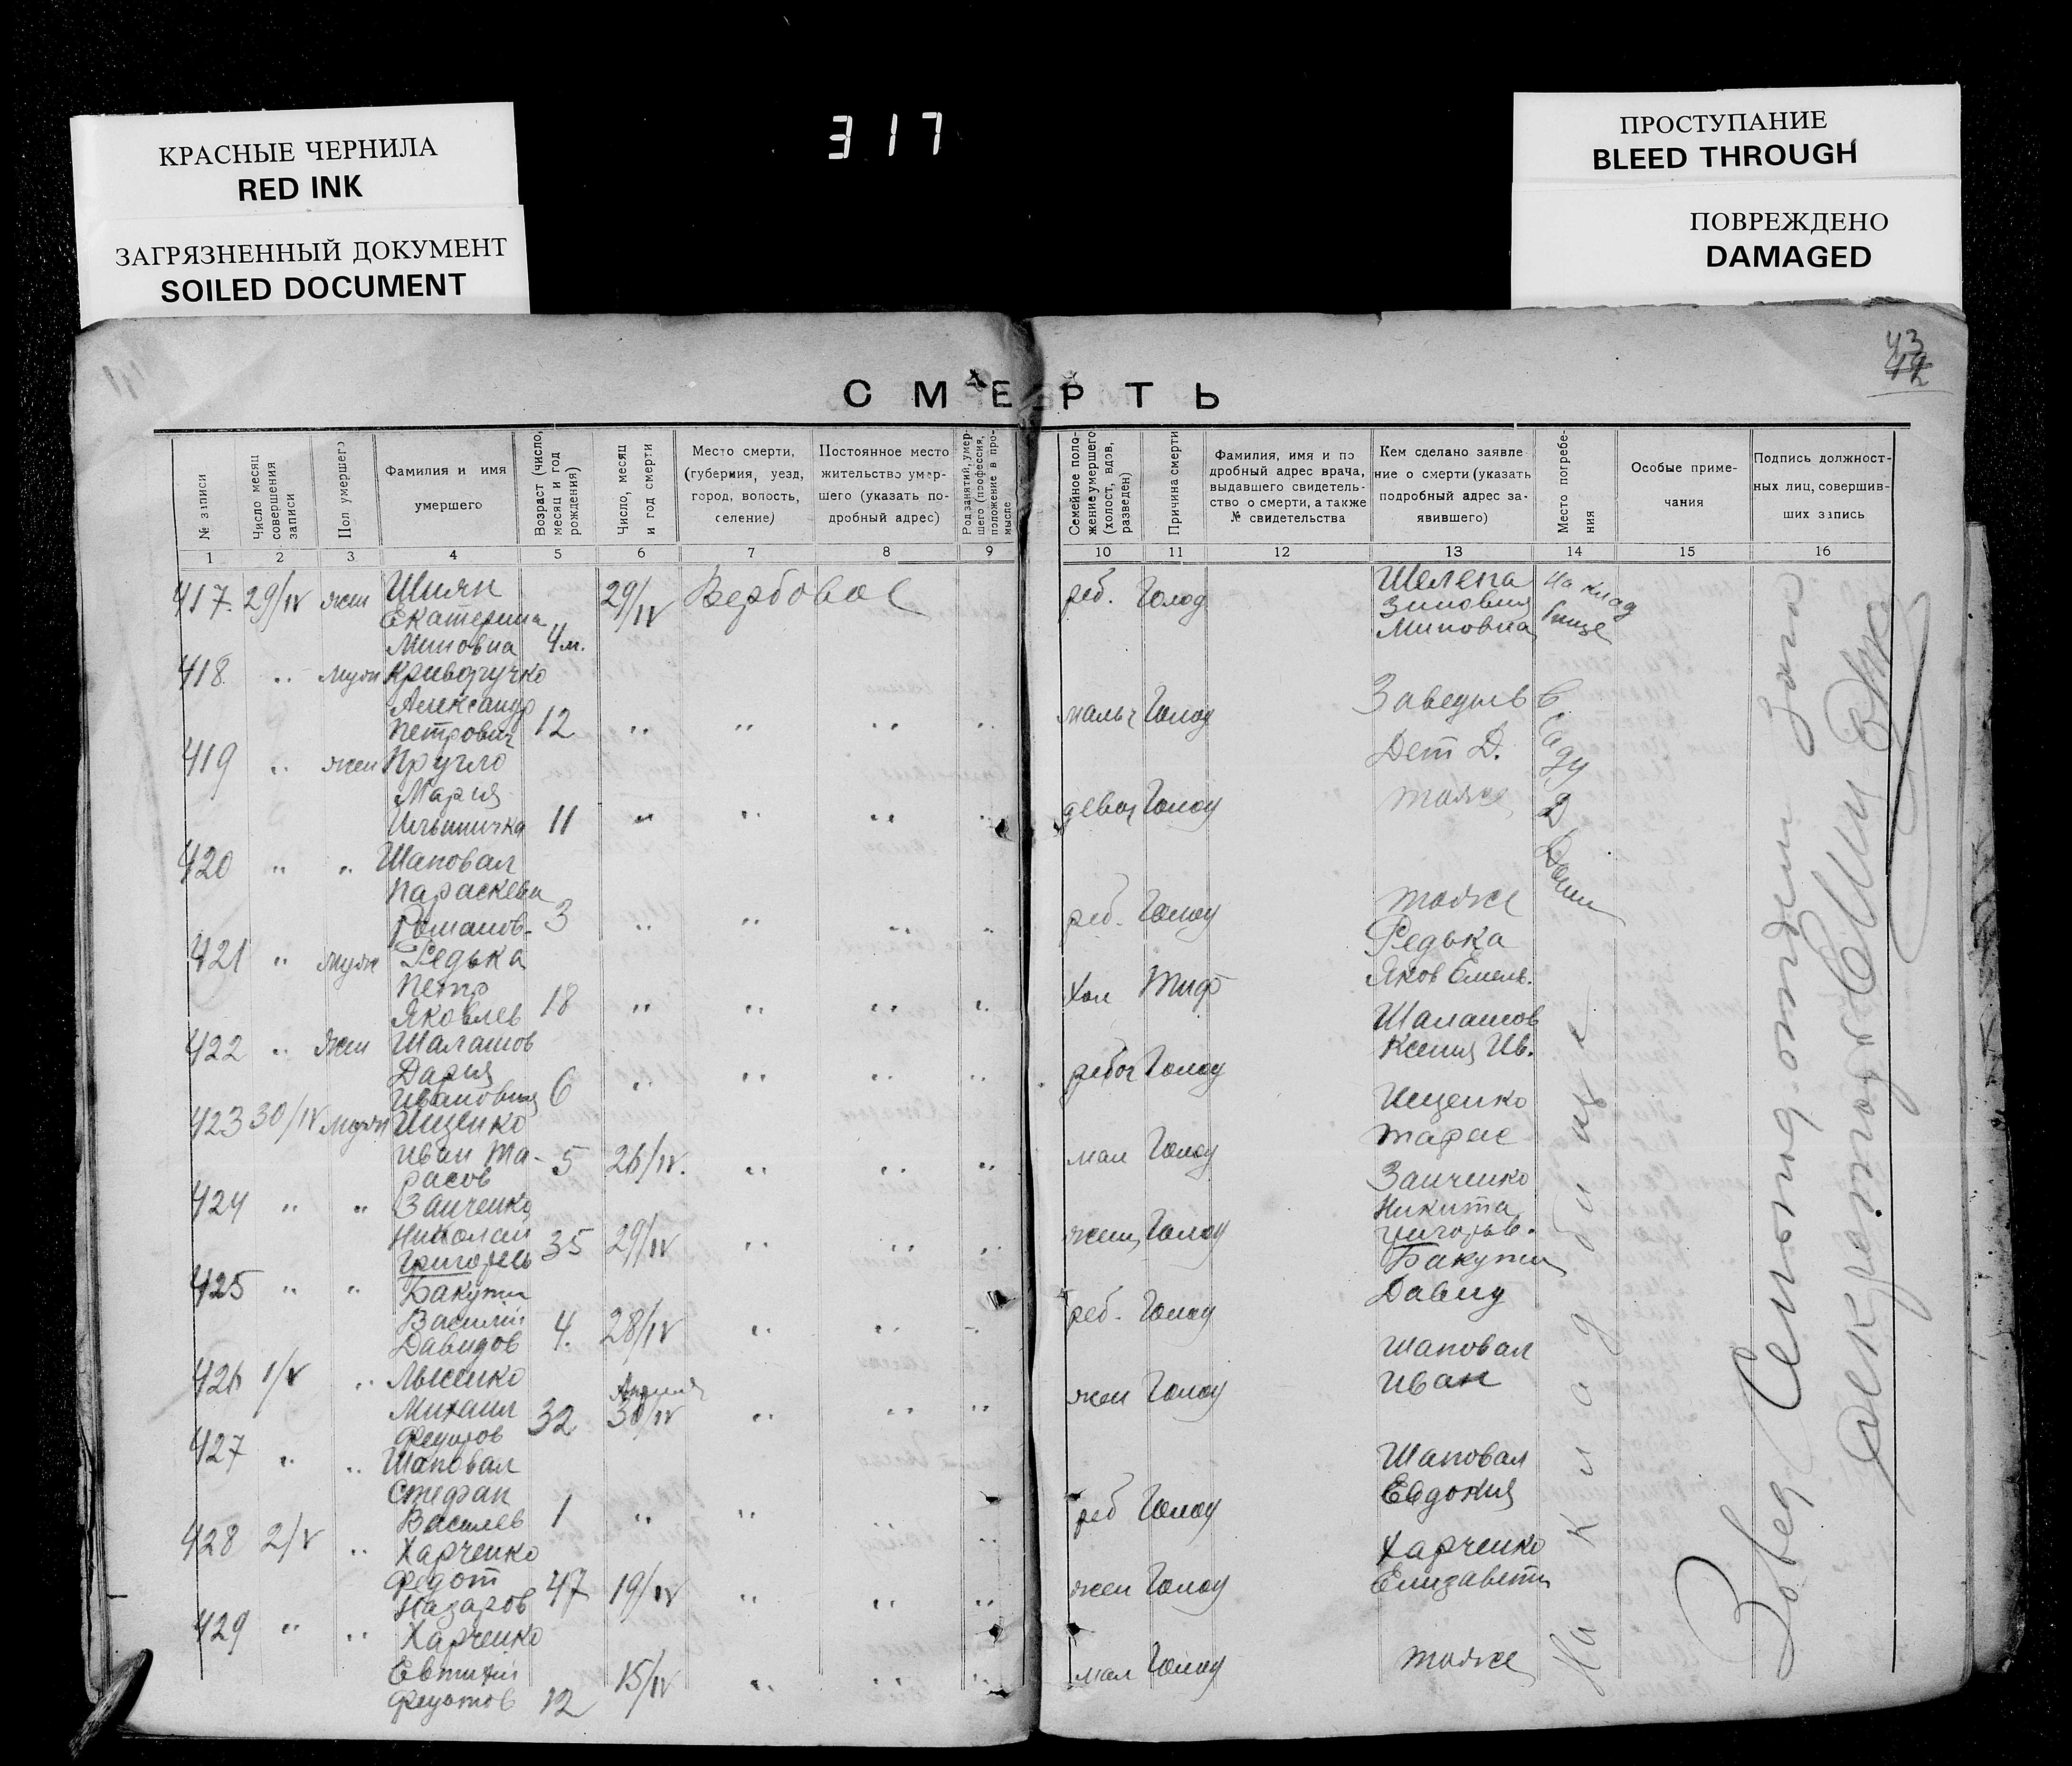 КРАСНЫЕ ЧЕРНИЛА
RED INK
ЗАГРЯЗНЕННЫЙ ДОКУМЕНТ
SOILED DOCUMENT
317
ПРОСТУПАНИЕ
BLEED THROUGH
ПОВРЕЖДЕНО
DAMAGED
43
СМЕРТЬ
№ записи
Число месяц совершения записи
Пол умершего
Фамилия и имя умершего
Возраст (число, месяц и год рождения)
Число, месяц и год смерти
Место смерти, (губерния, уезд, город, волость, селение)
Постоянное место жительство умершего (указать подробный адрес)
Род занятий, умершего (профессия, положение в промысле
Семейное положение умершего (холост, вдов, разведен)
Причина смерти
Фамилия, имя и подробный адрес врача, выдавшего свидетельство о смерти, а также № свидетельства
Кем сделано заявление о смерти (указать подробный адрес заявившего)
Место погребения
Особые примечания
Подпись должностных лиц, совершивших запись
1 2 3 4 5 6 7 8 9 10 11 12 13 14 15 16
417. 29/IV жен Шиян 29/IV Вербовое реб. Голод Шелепа На клад
Екатерина Зиновия бище
Миновна 4 м. Миновна
418. " муж Криворучко
Александр
Петрович 12 " " " " мальч Голод Заведыв
Дет Д. Саду Д
419 " жен Кругло
Мария
11 " " " " девоч Голод тоже
420 " " Шаповал
Параскева
Романов. 3 " " " " реб. Голод тоже
421 " муж Редька
Петр
Яковлев 18 " " " " Хол Тиф Редька
Яков Емель.
422 " жен Шалашов
Дария
Ивановна 6 " " " " ребоч Голод Шалашов
Ксения Ив.
423 30/IV муж Ищенко
Иван Та-
расов 5 26/IV. " " " мал Голод Ищенко
Тарас
424 " " Заиченко
Николай
Григорев 35 29/IV " " " жен Голод Заиченко
Никита
Григорьв.
425 " " Бакута
Василий
Давидов 4. 28/IV " " " реб. Голод Бакута
Давид
426 1/V " Лысенко
Михаил
Федоров 32 Апреля 30/IV " " " жен Голод Шаповал
Иван
427 " " Шаповал
Стефан
Васелев 1 " " " реб Голод Шаповал
Евдокия
428 2/V " Харченко
Федот
Назаров 47 19/IV " " " жен Голод Харченко
Елизавета
429 " " Харченко
Евтихий
Федотов 12 15/IV " " " мал Голод тоже
На кладбище
Завед
Секретарь